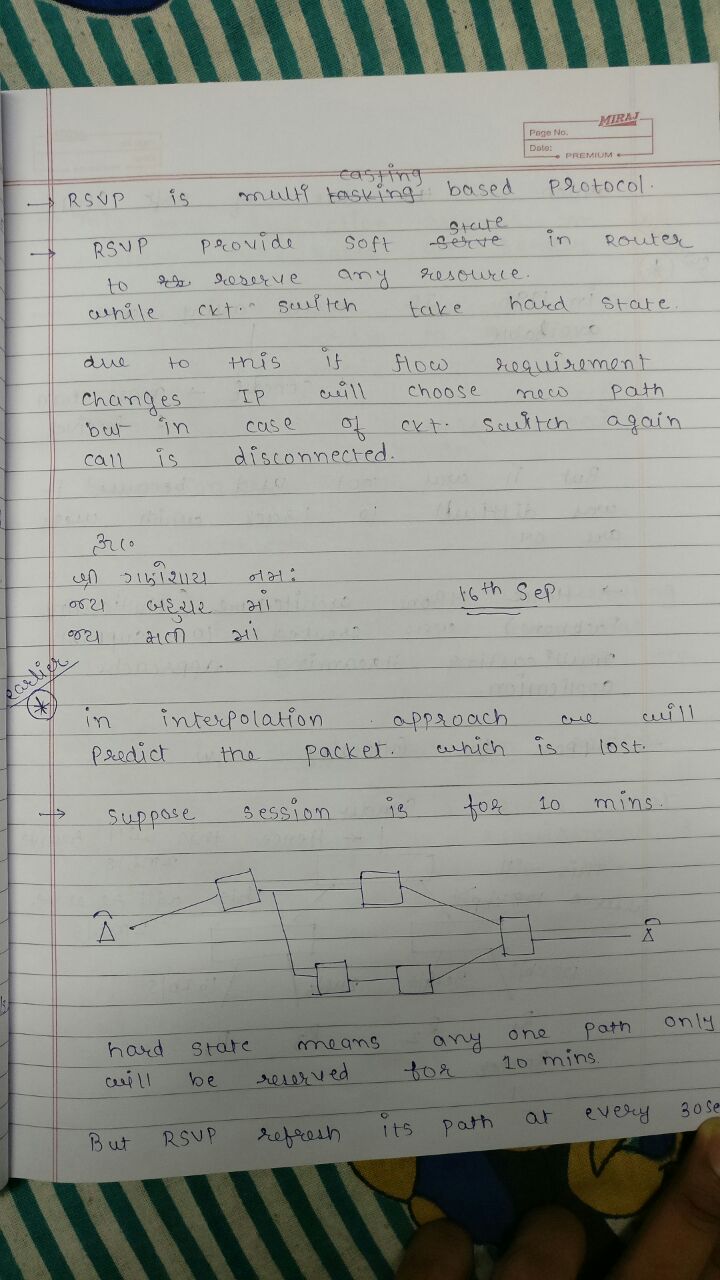 MIRAJ
Page No.
Date:
PREMIUM
casting
→ RSVP is multi tasking based protocol.
state
→ RSVP provide soft serve in Router
to reserve any resource.
while ckt. switch take hard state.
due to this if flow requirement
changes IP will choose new path
but in case of ckt. switch again
call is disconnected.
શ્રી ગણેશાય નમઃ
જય બહુચર માં
16th Sep
જય માં
earlier
* in interpolation approach we will
predict the packet. which is lost.
→ suppose session is for 10 mins.
hard state means any one path only
will be reserved for 10 mins.
But RSVP refresh its path at every 30se